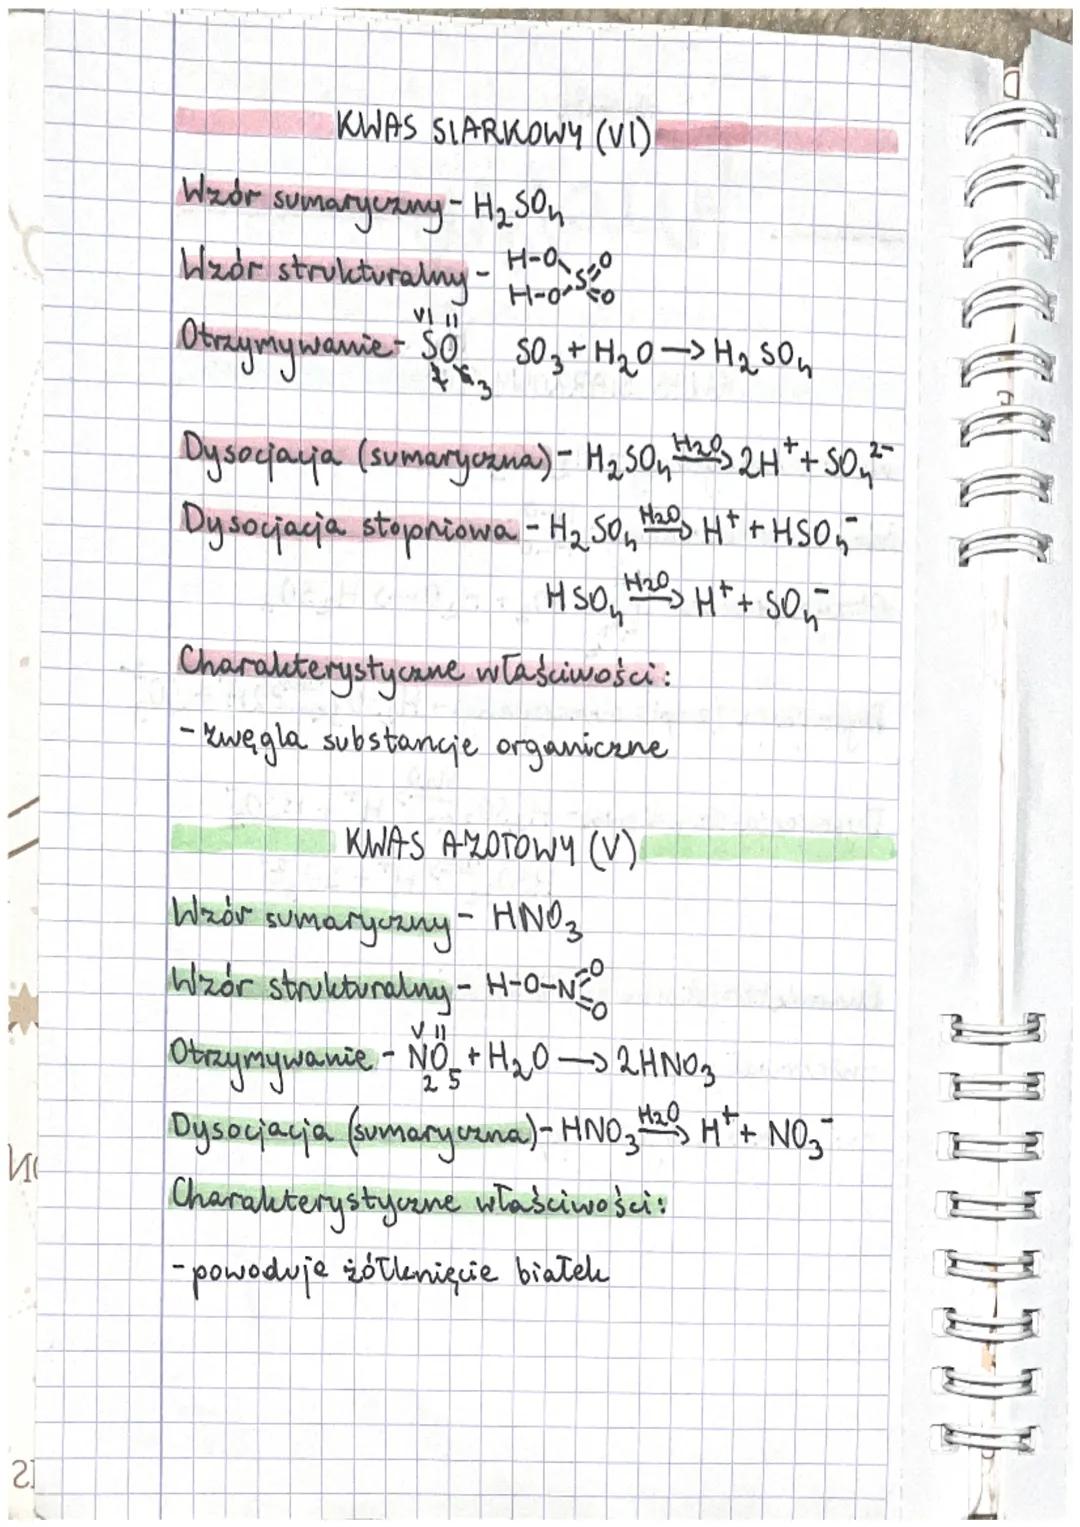 KWAS SIARKOWY (VI)
Wzór sumaryczny - H₂SO₄
Wzór strukturalny - H-O S=O
H-O =O
VI II
Otrzymywanie - SO₃ SO₃ + H₂O → H₂SO₄
Dysocjacja (sumaryczna) - H₂SO₄ H₂O→ 2H⁺ + SO₄²⁻
Dysocjacja stopniowa - H₂SO₄ H₂O→ H⁺ + HSO₄⁻
HSO₄ H₂O→ H⁺ + SO₄⁻
Charakterystyczne właściwości:
- zwęgla substancje organiczne
KWAS AZOTOWY (V)
Wzór sumaryczny - HNO₃
Wzór strukturalny - H-O-N=O
=O
V II
Otrzymywanie - N₂O₅ + H₂O → 2HNO₃
Dysocjacja (sumaryczna) - HNO₃ H₂O→ H⁺ + NO₃⁻
Charakterystyczne właściwości:
- powoduje żółknięcie białek